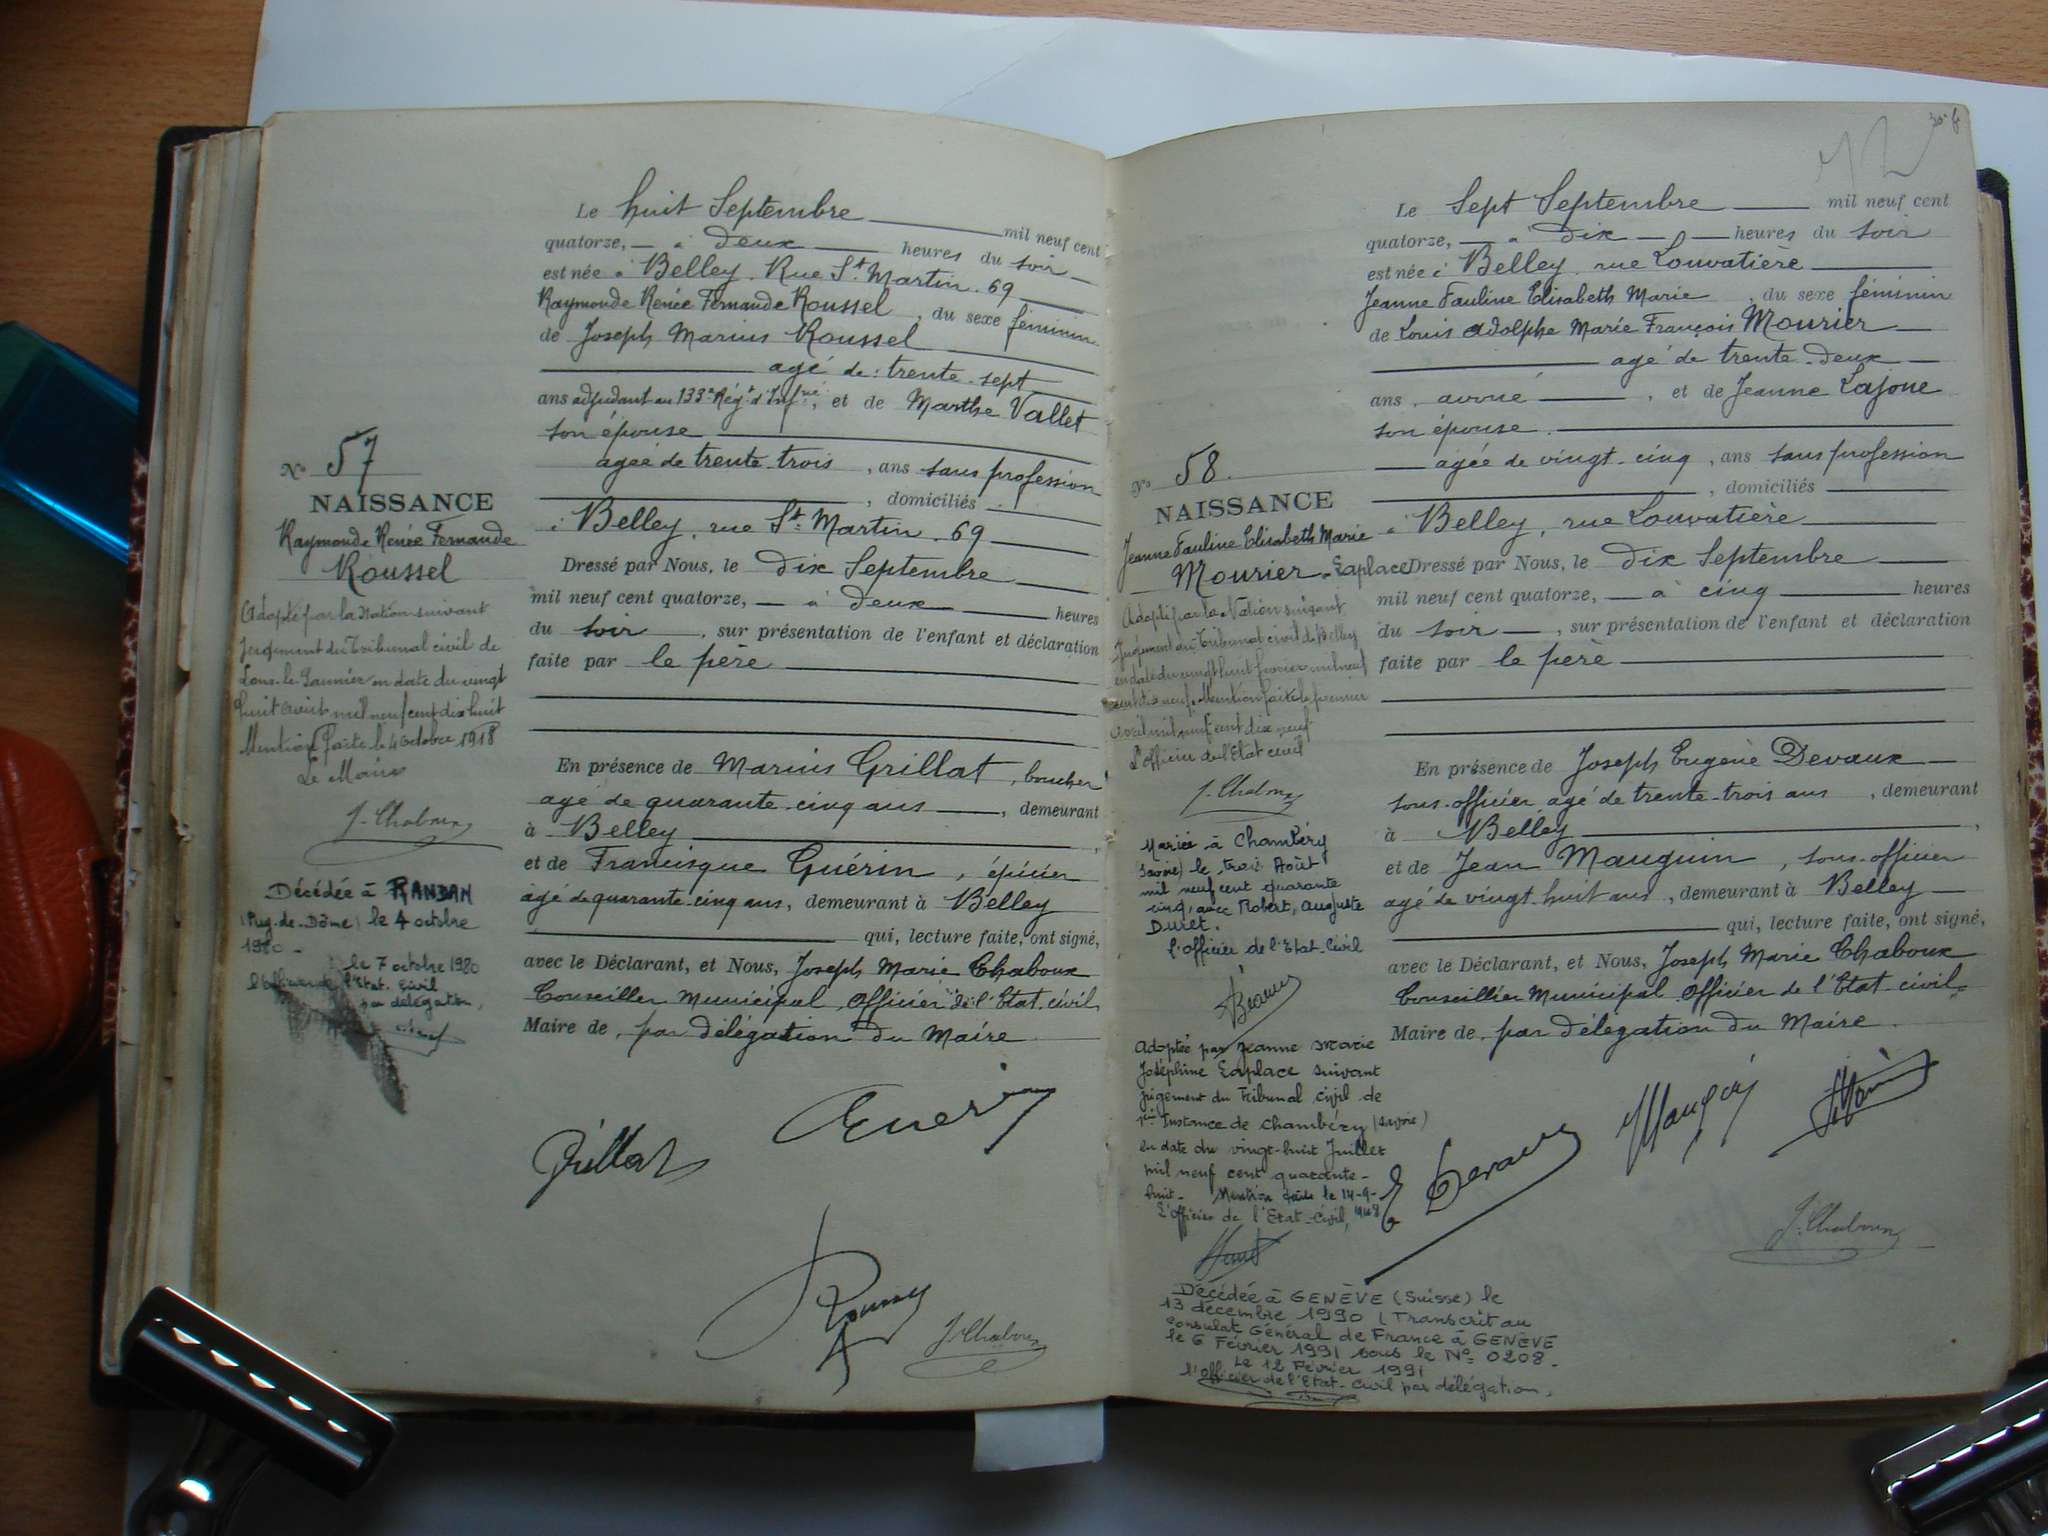 Le huit Septembre mil neuf cent
quatorze, à deux heures du soir
est née à Belley. Rue St. Martin. 69
Raymonde Renée Fernande Roussel, du sexe féminin
de Joseph Marius Roussel
agé de trente-sept
ans adjudant au 133e Régt d'Infrie, et de Marthe Vallet
son épouse
agée de trente-trois, ans sans profession
, domiciliés
à Belley, rue St. Martin. 69
Dressé par Nous, le dix Septembre
mil neuf cent quatorze, à deux heures
du soir, sur présentation de l'enfant et déclaration
faite par le père
En présence de Marius Grillat, boucher
agé de quarante-cinq ans, demeurant
à Belley,
et de Francisque Guérin, épicier
agé de quarante-cinq ans, demeurant à Belley
qui, lecture faite, ont signé,
avec le Déclarant, et Nous, Joseph Marie Chaboux
Conseiller Municipal, Officier de l'Etat-civil
Maire de par délégation du Maire
Nº 57
NAISSANCE
Raymonde Renée Fernande
Roussel
Adopté par la Nation suivant
Jugement du Tribunal civil de
Lons-le-Saunier en date du vingt
huit août mil neuf cent dix huit
Mention faite le 4 Octobre 1918
Le Maire
J. Chaboux
Décédée à RANDAN
(Puy-de-Dôme) le 4 octobre
1980 -
le 7 octobre 1980
l'Officier de l'Etat. Civil
par délégation,
Grillat
Guerin
J. Chaboux
30 f
Le Sept Septembre mil neuf cent
quatorze, à dix heures du soir
est née à Belley, rue Louvatière
Jeanne Pauline Elisabeth Marie, du sexe féminin
de Louis Adolphe Marie François Mourier
agé de trente-deux
ans, avoué, et de Jeanne Lajoue
son épouse.
agée de vingt-cinq, ans sans profession
, domiciliés
à Belley, rue Louvatière
Dressé par Nous, le dix Septembre
mil neuf cent quatorze, à cinq heures
du soir, sur présentation de l'enfant et déclaration
faite par le père
En présence de Joseph Eugène Devaux
sous-officier, agé de trente-trois ans, demeurant
à Belley,
et de Jean Mauguin, sous-officier
agé de vingt-huit ans, demeurant à Belley
qui, lecture faite, ont signé,
avec le Déclarant, et Nous, Joseph Marie Chaboux
Conseiller Municipal Officier de l'Etat-civil
Maire de par délégation du Maire.
Nº 58.
NAISSANCE
Jeanne Pauline Elisabeth Marie
Mourier - Laplace
Adopté par la Nation suivant
Jugement du Tribunal civil de Belley
en date du vingt huit février mil neuf
cent dix neuf. Mention faite le premier
avril mil neuf cent dix neuf
L'officier de l'Etat civil
J. Chaboux
Mariée à Chambéry
(Savoie) le trois Août
mil neuf cent quarante
cinq, avec Robert, Auguste
Duret.
l'officier de l'Etat-Civil
Adoptée par Jeanne Marie
Joséphine Laplace suivant
jugement du Tribunal civil de
1ère Instance de Chambéry (Savoie)
en date du vingt-huit Juillet
mil neuf cent quarante-
huit - Mention faite le 14-9-
1948
L'officier de l'Etat-Civil,
Décédée à GENÈVE (Suisse) le
13 décembre 1990 (Transcrit au
Consulat Général de France à GENÈVE
le 6 Février 1991 sous le Nº 0208 -
Le 12 Février 1991
l'officier de l'Etat-Civil par délégation,
E Devaux
Mauguin
J. Chaboux